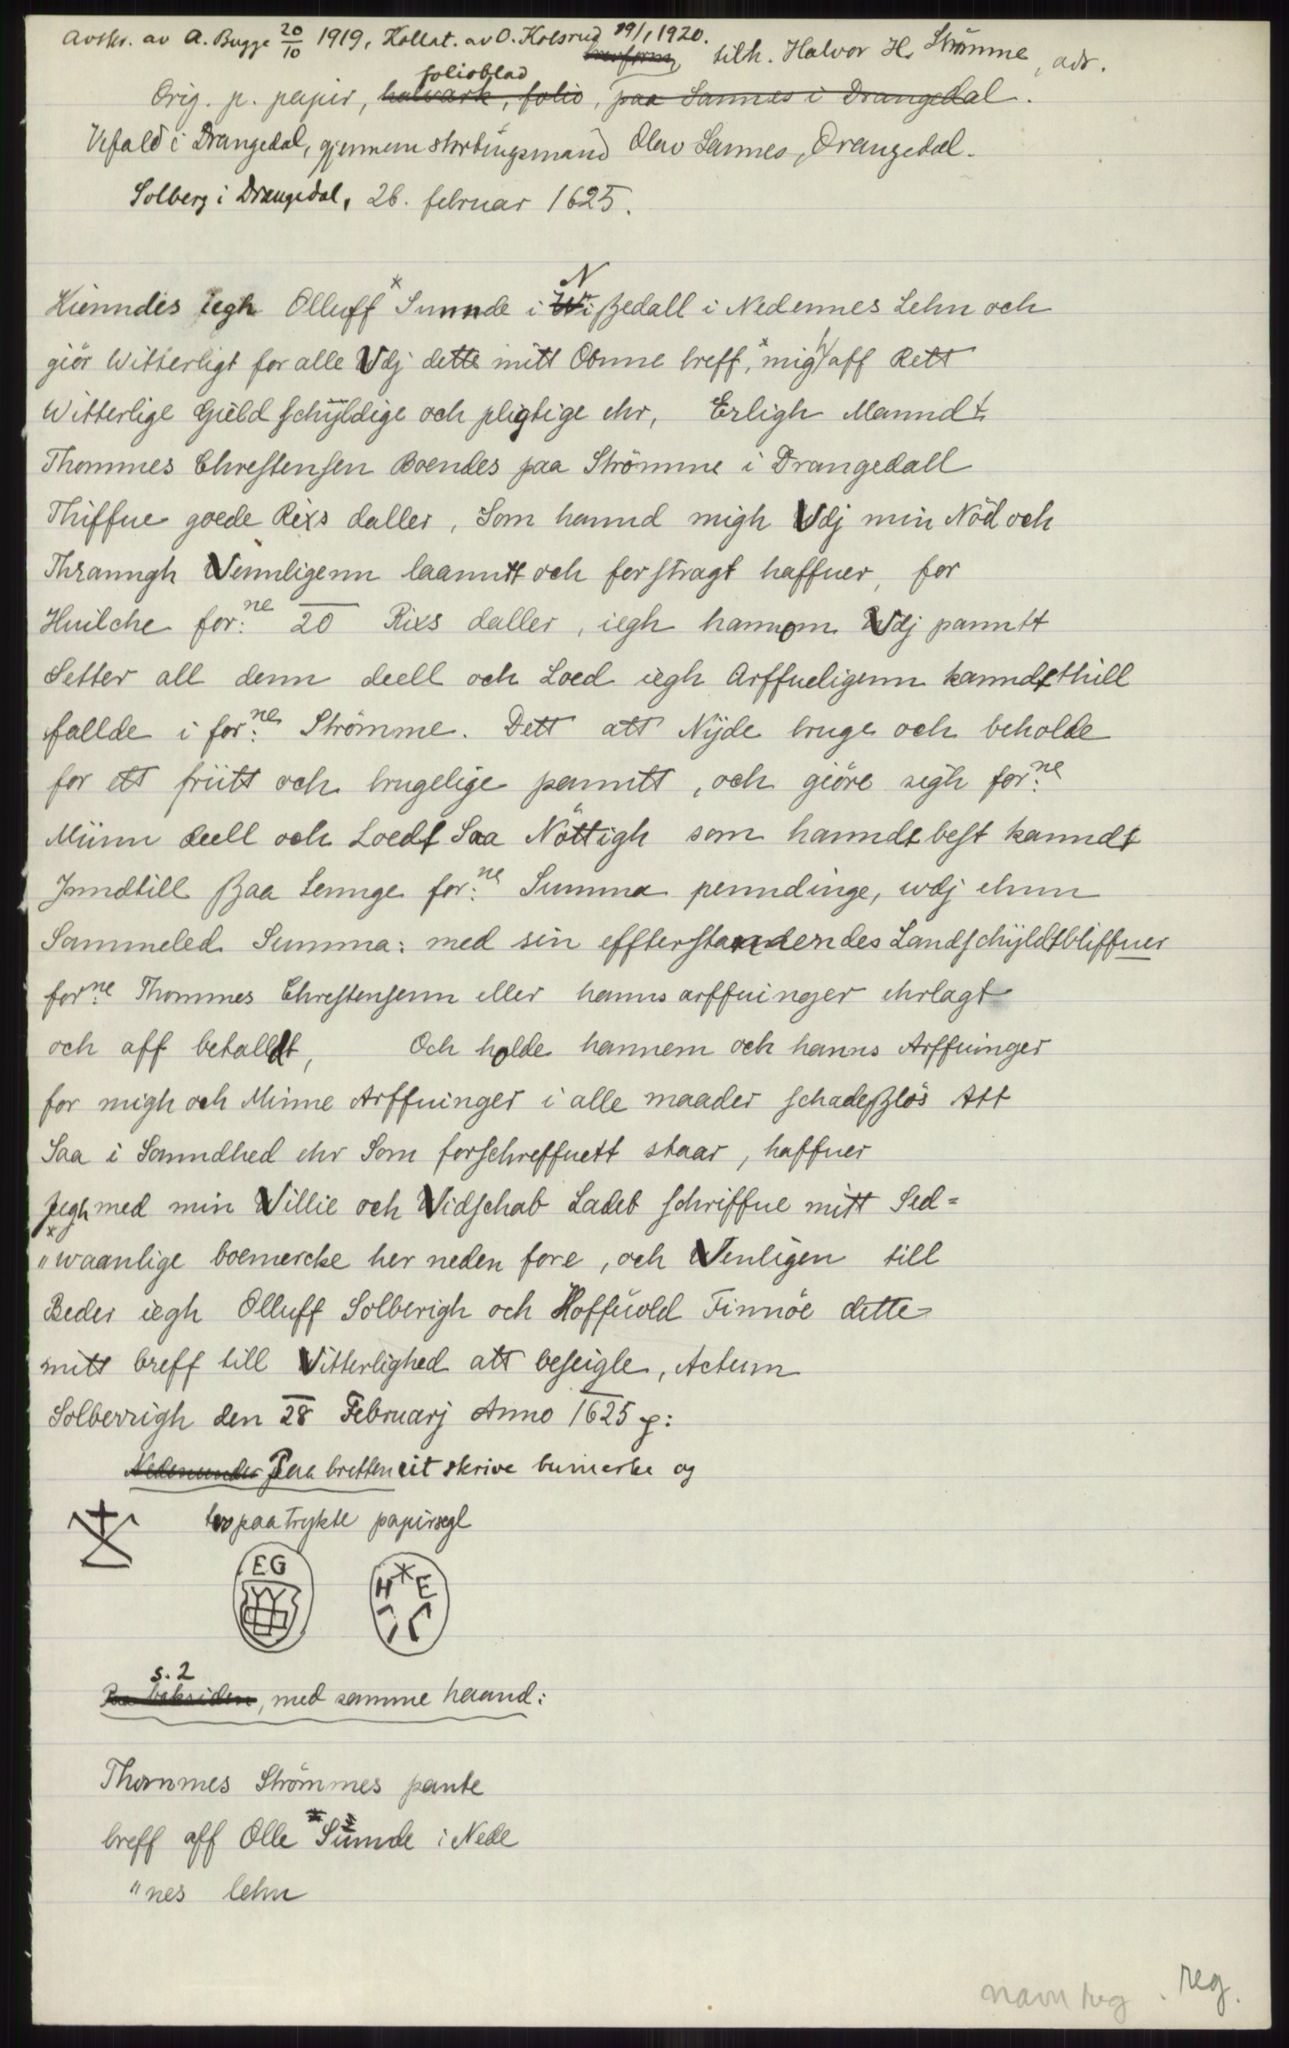 Avskr. av A. Bugge 20/10 1919, Kollat. av O. Kolsrud 29/1 1920.
brevform, tilh. Halvor H. Strømme, adr.
folioblad
Orig. p. papir, halvark, folio, paa Sannes i Drangedal.
Vefald i Drangedal, gjennem stortingsmand Olav Sannes, Drangedal.
Solberg i Drangedal, 28. februar 1625.
Kienndes iegh Olluff* Sunnde i Nißedall i Nedennes Lehn och
giör Witterligt for alle Vdj dette mitt Obnne breff, mig aff Rett
Witterlige Gield schÿldige och pligtige ehr, Erligh Manndt
Thommes Chrestensen Boendes paa Strömme i Drangedall
Thiffue goede Rixs daller, Som hannd migh Vdj min Nöd och
Thranngh Vennligenn laanntt och forstragt haffuer, for
Huilche for:ne 20 Rixs daller, iegh hannom Vdj panntt
Setter all denn deell och Loed iegh Arffueligenn kanndt thill
fallde i for:ne Strömme. Dett att Nÿde bruge och beholde
for ett friitt och brugelige panntt, och giöre sigh for:ne
Miinn deell och Loedt Saa Nöttigh som hanndt best kanndt
Jnndtill ßaa Lennge for:ne Summa penndinge, wdj ehnn
Sammeled Summa: med sin effterstaandendes Landschÿldt bliffuer
for:ne Thommes Chrestensenn eller hanns arffuinger ehrlagt
och aff betalldt, Och holde hannem och hanns Arffuinger
for migh och Minne Arffuinger i alle maader schadeßlös Att
Saa i Sanndhed ehr Som forschreffuett staar, haffuer
Jegh med min Villie och Vidschab Ladet schriffue mitt Sed=
"waanlige boemercke her neden fore, och Venligen till
Beder iegh Olluff Solberigh och Hoffuold Finnöe dette
mitt breff till Vitterlighed att beseigle, Actum
Solberrigh den 28 Februarj Anno 1625
Nedenunder Paa bretten eit skrive bumerke og
to paatrykte papirsegl
EG
H * E
s. 2
Paa baksiden, med samme haand:
Thommes Strömmes pante
breff aff Olle *Sunde i Nede
"nes lehn
navn reg. reg.